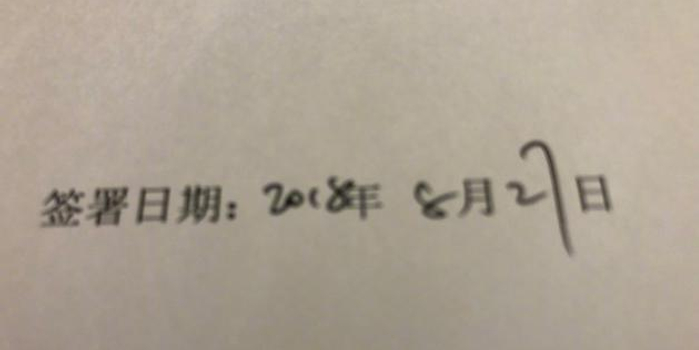 签署日期：2018年 8月27日